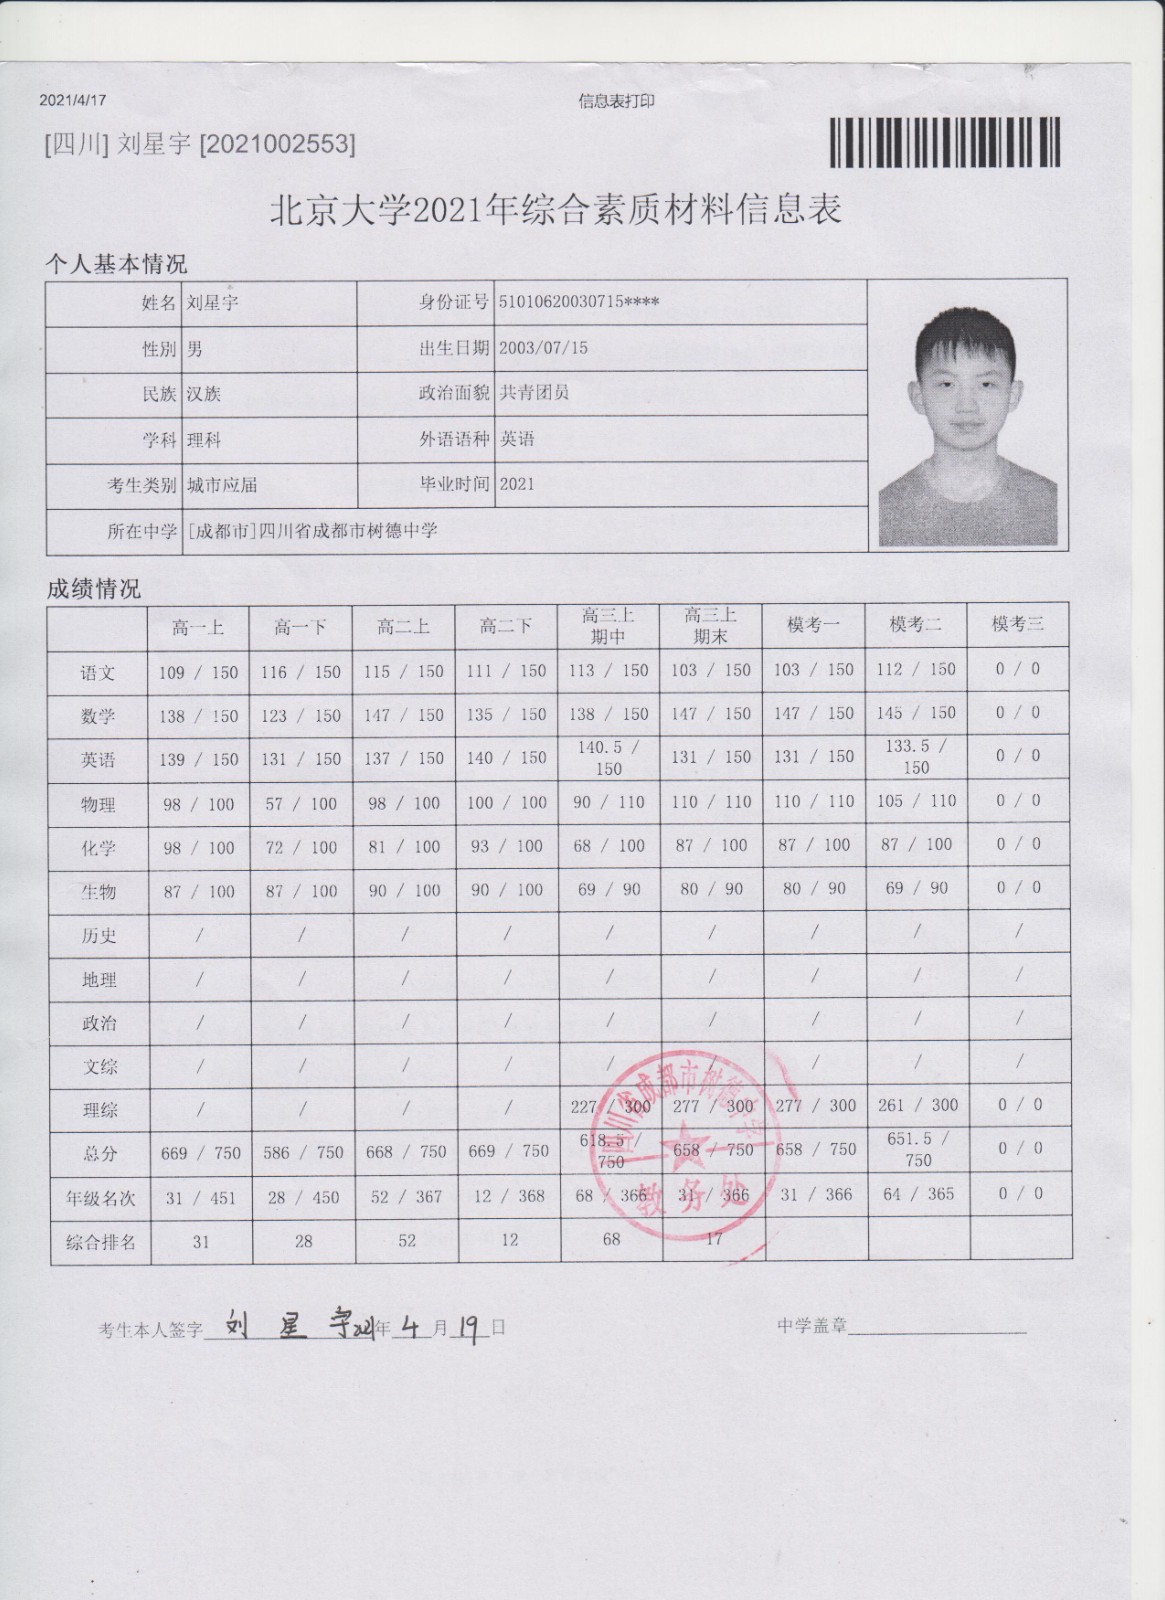 2021/4/17 信息表打印
[四川] 刘星宇 [2021002553]
北京大学2021年综合素质材料信息表
个人基本情况
姓名 刘星宇 身份证号 51010620030715****
性别 男 出生日期 2003/07/15
民族 汉族 政治面貌 共青团员
学科 理科 外语语种 英语
考生类别 城市应届 毕业时间 2021
所在中学 [成都市]四川省成都市树德中学
成绩情况
高一上 高一下 高二上 高二下 高三上期中 高三上期末 模考一 模考二 模考三
语文 109 / 150 116 / 150 115 / 150 111 / 150 113 / 150 103 / 150 103 / 150 112 / 150 0 / 0
数学 138 / 150 123 / 150 147 / 150 135 / 150 138 / 150 147 / 150 147 / 150 145 / 150 0 / 0
英语 139 / 150 131 / 150 137 / 150 140 / 150 140.5 / 150 131 / 150 131 / 150 133.5 / 150 0 / 0
物理 98 / 100 57 / 100 98 / 100 100 / 100 90 / 110 110 / 110 110 / 110 105 / 110 0 / 0
化学 98 / 100 72 / 100 81 / 100 93 / 100 68 / 100 87 / 100 87 / 100 87 / 100 0 / 0
生物 87 / 100 87 / 100 90 / 100 90 / 100 69 / 90 80 / 90 80 / 90 69 / 90 0 / 0
历史 / / / / / / / / /
地理 / / / / / / / / /
政治 / / / / / / / / /
文综 / / / / / / / / /
理综 / / / / 227 / 300 277 / 300 277 / 300 261 / 300 0 / 0
总分 669 / 750 586 / 750 668 / 750 669 / 750 618.5 / 750 658 / 750 658 / 750 651.5 / 750 0 / 0
年级名次 31 / 451 28 / 450 52 / 367 12 / 368 68 / 366 31 / 366 31 / 366 64 / 365 0 / 0
综合排名 31 28 52 12 68 17
四川省成都市树德中学
教务处
考生本人签字 刘星宇 2021年 4 月 19 日 中学盖章